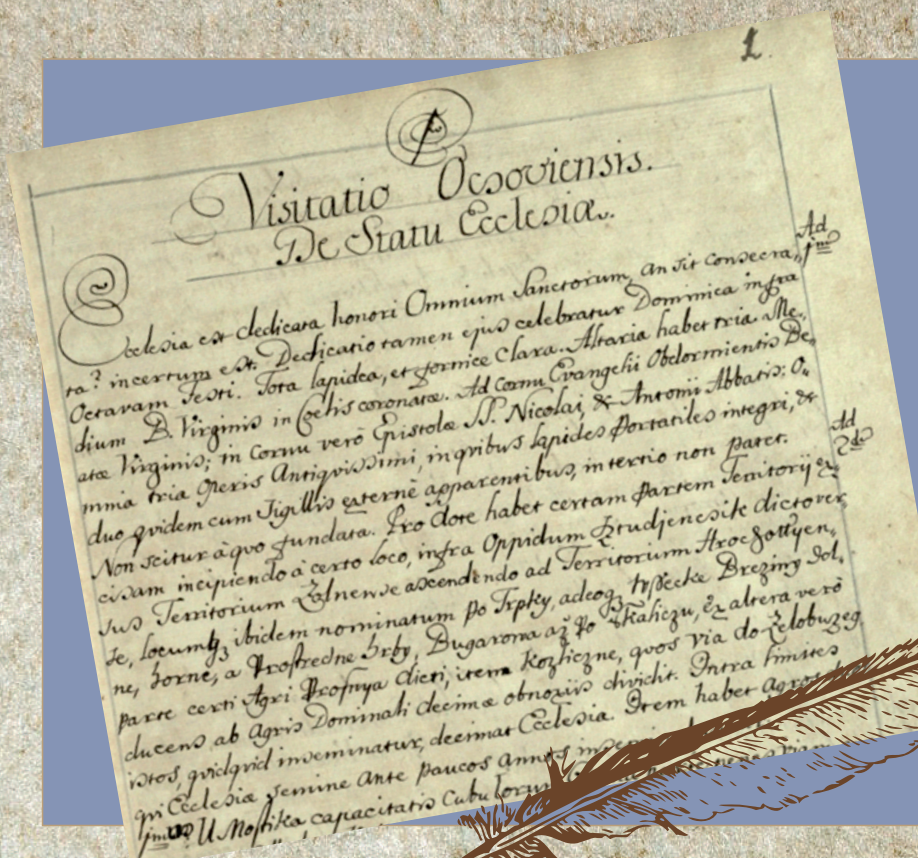 1.
A
Visitatio Ocsoviensis.
De Statu Ecclesiæ.
Ecclesia est dedicata honori Omnium Sanctorum, an sit consecra,, Ad 1mũ
ta? incertum est. Dedicatio tamen ejus celebratur Dominica infra
Octavam Festi. Tota lapidea, et fornice clara. Altaria habet tria. Me,,
dium B. Virginis in Coelis coronatæ. Ad Cornu Evangelii Obdormientis Be,,
atæ Virginis; in Cornu verò Epistolæ SS. Nicolai, & Antonii Abbatis; O,,
mnia tria Operis Antiquissimi, in qvibus lapides Portatiles integri, &
duo qvidem cum Sigillis externè apparentibus, in tertio non patet. Ad 2dũ
Non scitur à qvo fundata. Pro dote habet certam Partem Territorij ex,,
cisam incipiendo à certo loco, infra Oppidum dicto ver,,
sus Territorium Zolnense ascendendo ad Territorium
se, locumq3 ibidem nominatum Po Trpky, adeoq3 Breziny dol,,
ne, horne, a Prostredne hrby, Dugarowa až Po Skaliczu, Ex altera verò
parte certi Agri dicti, item Kozliczne, quos via do Zelobuzeg
ducens ab Agris Dominali decimæ obnoxiis dividit. Intra limites
istos, qvidqvid inseminatur, decimat Ecclesia. Item habet Agros
qvi Ecclesiæ semine ante paucos annos
1mus U Mostika capacitatis Cubulorum